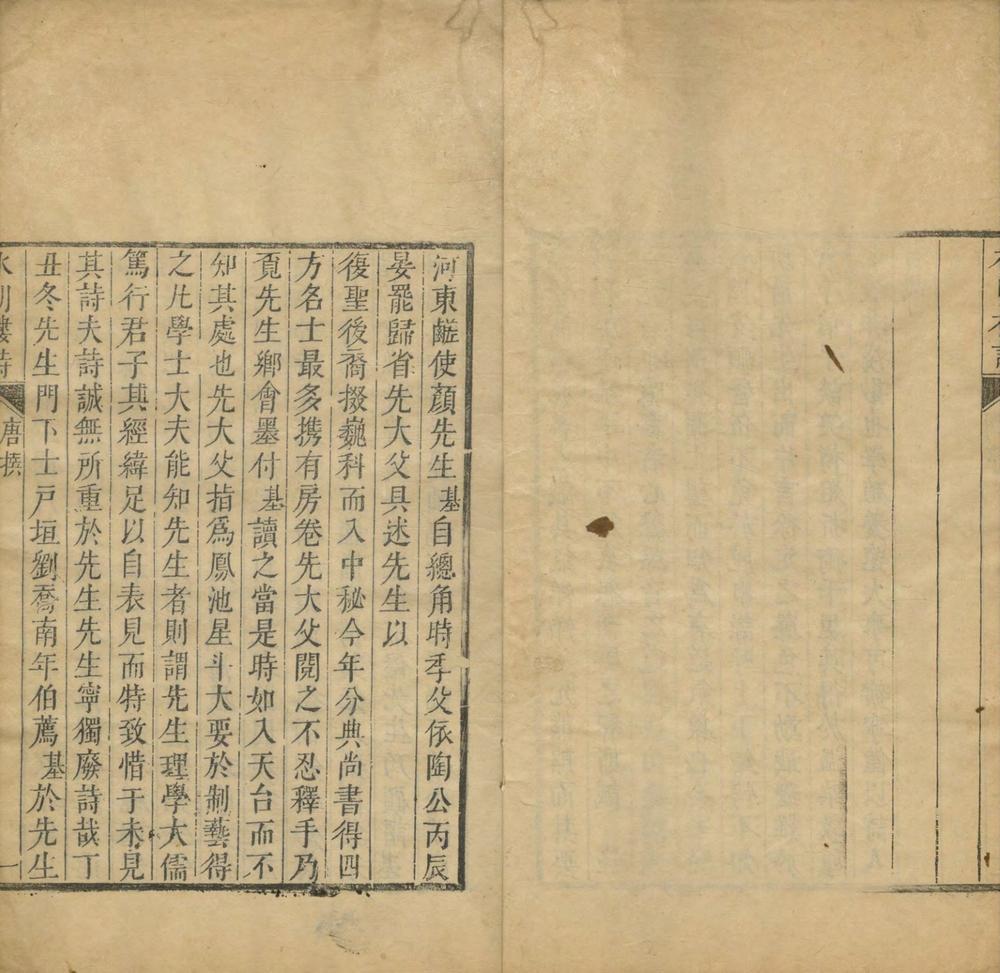 河東鹺使顏先生基自總角時季父依陶公丙辰
晏罷歸省先大父具述先生以
復聖後裔掇巍科而入中秘今年分典尚書得四
方名士最多携有房卷先大父閱之不忍釋手乃
覔先生鄉會墨付基讀之當是時如入天台而不
知其處也先大父指爲鳳池星斗大要於制藝得
之凡學士大夫能知先生者則謂先生理學大儒
篤行君子其經緯足以自表見而特致惜于未見
其詩夫詩誠無所重於先生先生寧獨廢詩哉丁
丑冬先生門下士戸垣劉喬南年伯薦基於先生
水明樓詩 唐撰 一